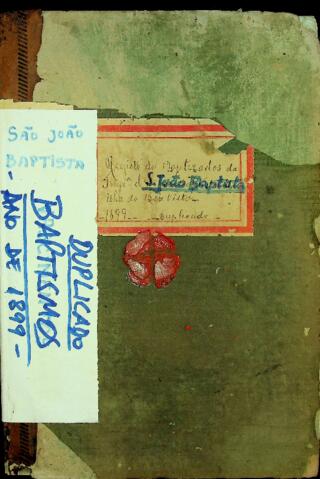 SÃO JOÃO
BAPTISTA
DUPLICADO
BAPTISMOS
- ANO DE 1899 -
Registo de Baptizados da
Freg.ª de S. João Baptista
Ilha da Boa Vista
1899 Duplicado